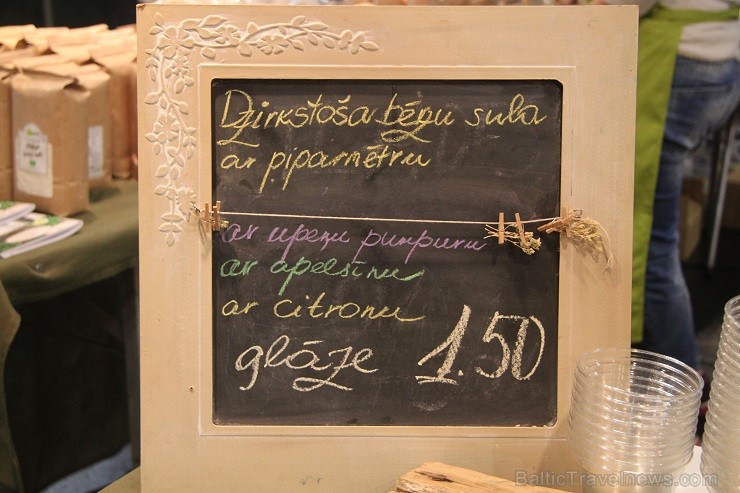 Dzirkstoša bērzu sula
ar piparmētru
ar upeņu pumpuru
ar apelsīnu
ar citronu
glāze 1.50
BalticTravelnews.com